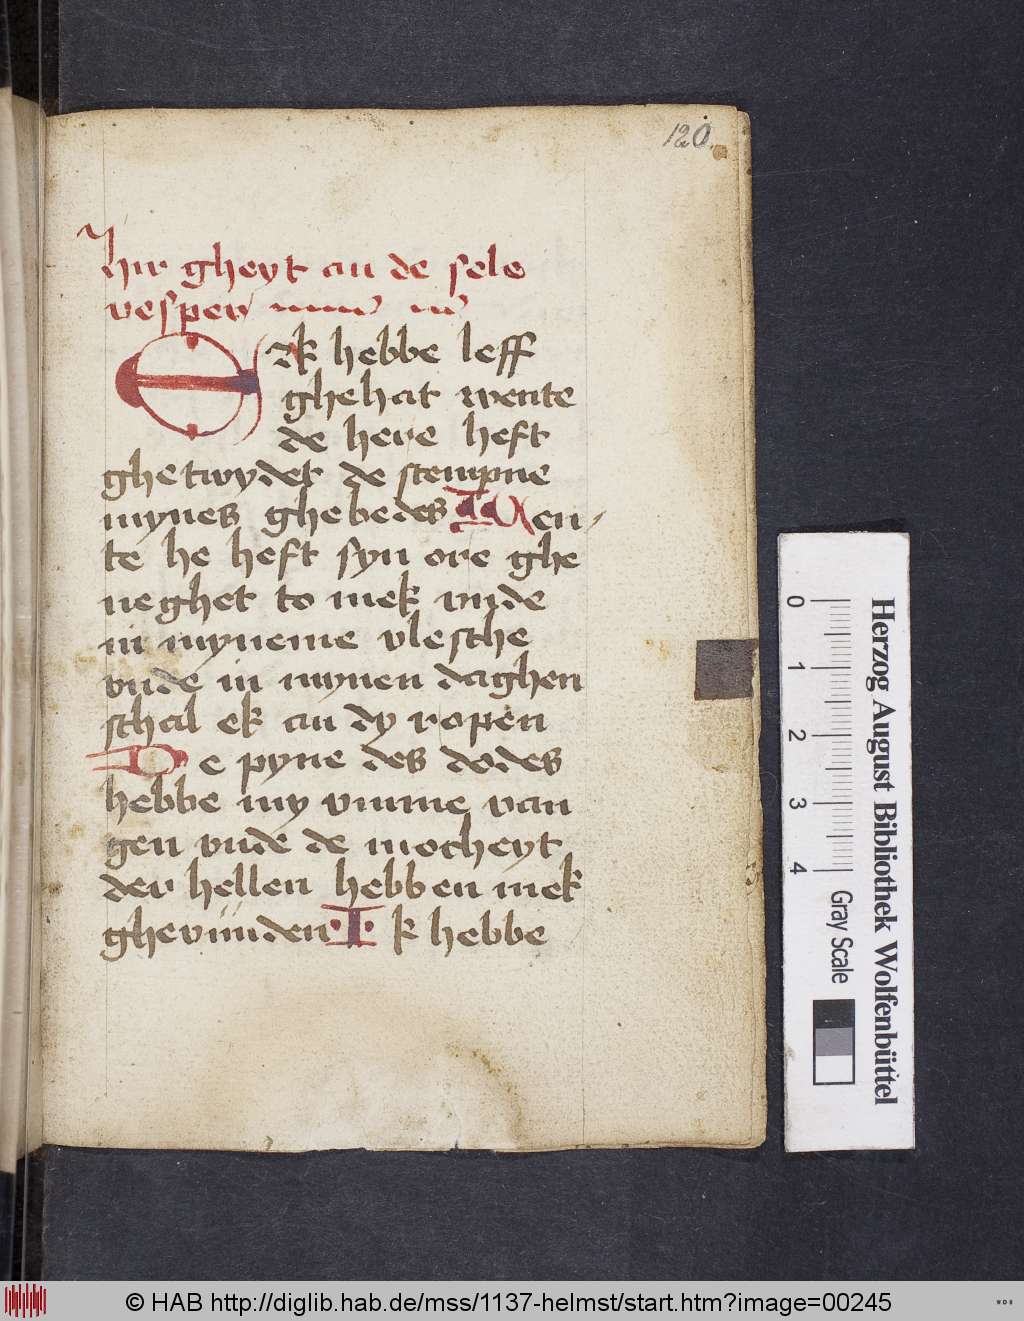 120
Hir gheyt an de sele
vesper
Ek hebbe leff
ghehat wente
de here heft
ghetwydet de stempne
mynes ghebedes Wen-
te he heft syn ore ghe
neghet to mek vnde
in myneme vlesche
vnde in mynen daghen
schal ek an dy ropen
De pyne des dodes
hebbe my vmme van
gen vnde de mocheyt
der hellen hebben mek
ghevunden Ik hebbe
Herzog August Bibliothek Wolfenbüttel
0 1 2 3 4 Gray Scale
© HAB http://diglib.hab.de/mss/1137-helmst/start.htm?image=00245